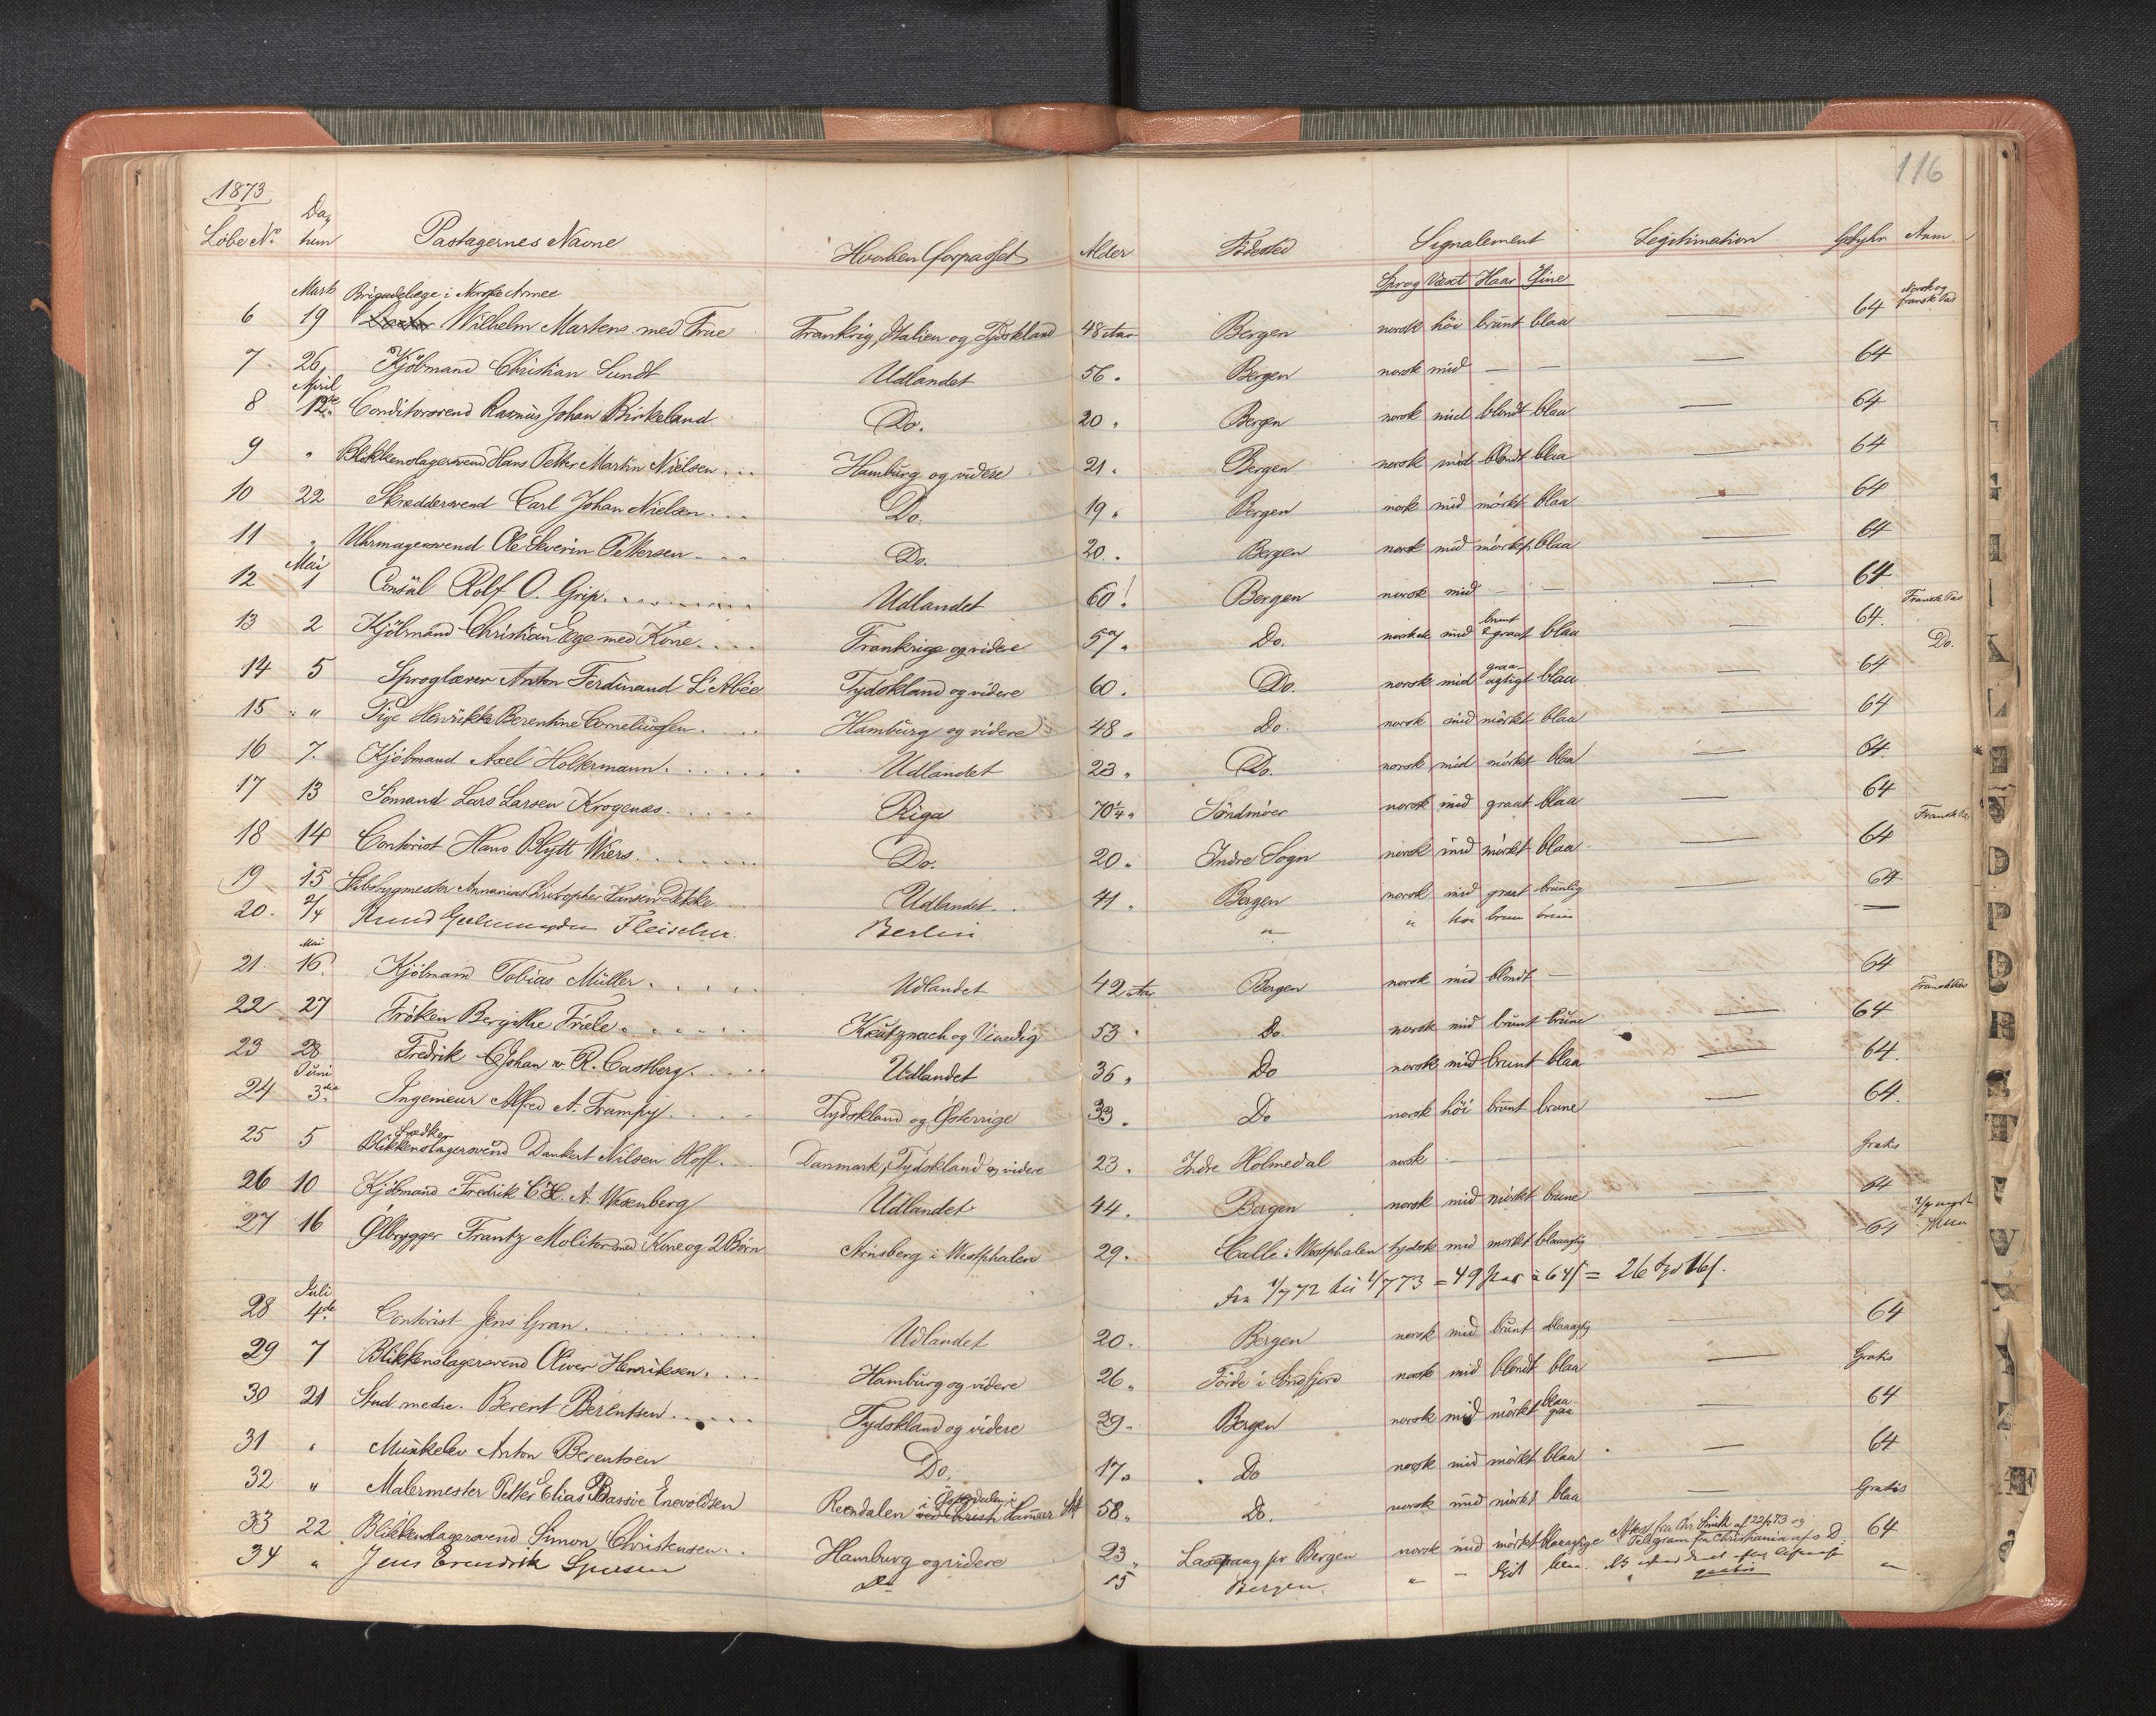 116
1873
Løbe No. Datum Passagernes Navne Hvorhen forpasset Alder Fødested Signalement Legitimation Gebyhr Anm.
Sprog Væxt Haar Øine
Marts Brigadelæge i Norske Armee Norsk og fransk Pas
6 19 Wilhelm Martens med Frue Frankrig, Italien og Tydskland 48 Aar Bergen norsk høi brunt blaa — 64
7 26 Kjøbmand Christian Sundt Udlandet 56 " Bergen norsk mid — — — 64
April
8 12te Conditorsvend Rasmus Johan Birkeland Do. 20 " Bergen norsk mid blondt blaa — 64
9 " Blikkenslagersvend Hans Petter Martin Nielsen Hamburg og videre 21 " Bergen norsk mid blondt blaa — 64
10 22 Skræddersvend Carl Johan Nielsen Do. 19 " Bergen norsk mid mörkt blaa — 64
11 " Uhrmagersvend Ole Severin Pettersen Do. 20 " Bergen norsk mid mörkt blaa — 64
Mai
12 1 Consul Rolf O. Grip Udlandet 60! Bergen norsk mid — — — 64
Fransk Pas
13 2 Kjøbmand Christian Ege med Kone Frankrige og videre 57 " Do. norsk mid brunt & graat blaa — 64.
Do.
14 5 Sproglærer Anton Ferdinand L'Abée Tydskland og videre 60 " Do. norsk mid graaagtigt blaa — 64
15 " Pige Henrikke Berentine Corneliussen Hamburg og videre 48 " Do. norsk mid mörkt blaa — 64
16 7. Kjøbmand Axel Holtermann Udlandet 23 " Do. norsk mid mörkt blaa — 64.
17 13 Sömand Lars Larsen Krogenæs Riga 70¼ " Söndmöer norsk mid graat blaa — 64
Fransk Pas
18 14 Contorist Hans Blytt Wiers Do. 20 " Indre Sogn norsk mid mörkt blaa — 64
19 15 Skibsbygmester Annanias Christopher Hansen Dekke Udlandet 41 " Bergen norsk mid graat brunlig — 64
20. 2/4 Fleischer Berlin " " høi brun brun —
Mai
21. 16. Kjøbmand Tobias Müller Udlandet 42 Aar Bergen norsk mid blondt — 64
Fransk Pas
22 27 Frøken Bergithe Friele Kreutznach og Venedig 53 " Do. norsk mid brunt brune — 64
23 28 Fredrik Johan v. R. Castberg Udlandet 36 " Do norsk mid brunt blaa — 64.
Juni
24 3die Ingenieur Alfred A. Trumpy Tydskland og Østerrige 33 " Do norsk høi brunt brune — 64.
25 5 Blikkenslagersvend Dankert Nilsen Hoff Danmark, Tydskland og videre 23 " Indre Holmedal norsk — — Gratis
26 10 Kjøbmand Fredrik C. H. A. Wesenberg Udlandet 44 " Bergen norsk mid mörkt brune — 64
27 16 Ølbrygger Frantz Molitor med Kone og 2 Børn Arnsberg i Westphalen 29 " Calle i Westphalen tydsk mid mørkt blaaagtig 64
Fra 1/7 72 til 1/7 73 = 49 Pas à 64 ß = 26 Spd 16 ß.
Juli
28 4de Contorist Jens Gran Udlandet 20 " Bergen norsk mid brunt blaaagtig 64
29 7 Blikkenslagersvend Oliver Henriksen Hamburg og videre 26 " Förde i Söndfjord norsk mid blondt blaa — Gratis
30 21 Stud medic. Berent Berentsen Tydskland og videre 29 " Bergen norsk mid mörkt blaagraa — 64
31 " Musikelev Anton Berentsen Do. 17 " Do norsk mid mörkt blaa — 64
32 " Malermester Petter Elias Bassøe Enevoldsen Reendalen i Østerdalen 58 " Do. norsk mid mörkt blaa — Gratis
33 22 Blikkenslagersvend Simon Christensen Hamburg og videre 23 " Bergen norsk mid mörkt blaaagtige Telegram fra Christiania 64
34 " Jens Do 15 " Bergen " — blaa "